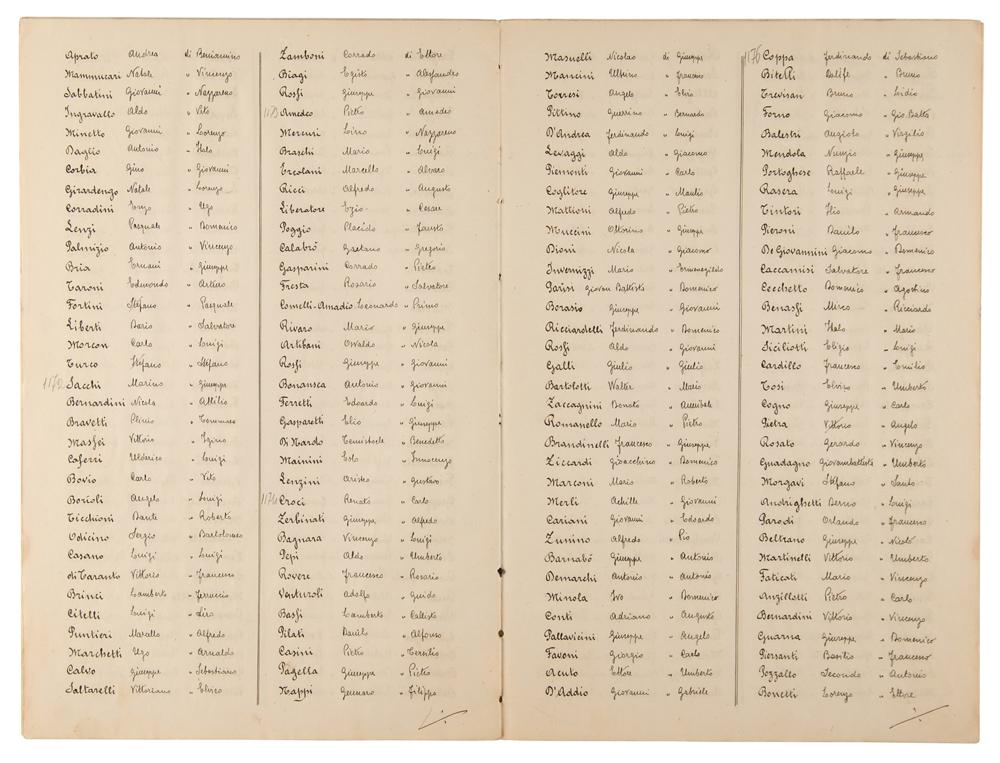 Aprato Andrea di Beniamino
Mammucari Natale " Vincenzo
Sabbatini Giovanni " Nazzareno
Ingravallo Aldo " Vito
Minetto Giovanni " Lorenzo
Baglio Antonio " Italo
Corbia Gino " Giovanni
Girardengo Natale " Lorenzo
Corradini Enzo " Ugo
Lenzi Pasquale " Domenico
Palmizio Antonio " Vincenzo
Bria Ernani " Giuseppe
Taroni Edmondo " Arturo
Fortini Stefano " Pasquale
Liberti Dario " Salvatore
Morcon Carlo " Luigi
Turco Stefano " Stefano
Sacchi Marino " Giuseppe
Bernardini Nicola " Attilio
Bravetti Clinio " Tommaso
Masfei Vittorio " Igino
Caforri Ulderico " Luigi
Bovio Carlo " Vito
Borioli Angelo " Luigi
Ticchioni Dante " Roberto
Odicino Sergio " Bartolomeo
Casano Luigi " Luigi
di Taranto Vittorio " Francesco
Brinci Lamberto " Ferruccio
Citelli Luigi " Siro
Puntieri " Alfredo
Marchetti Ugo " Arnaldo
Calvo Giuseppe " Sebastiano
Saltarelli Vittoriano " Elvico
Zamboni Corrado di Ettore
Biagi Egisto " Alessandro
Rossi Giuseppe " Giovanni
1173 Amedeo Pietro " Amedeo
Merani Livio " Nazzareno
Braschi Mario " Luigi
Ercolani Marcello " Alvaro
Ricci Alfredo " Augusto
Liberatore Ezio " Cesare
Poggio Placido " Fausto
Calabrò Gaetano " Gregorio
Gasparini Corrado " Pietro
Fresta Rosario " Salvatore
Comelli-Amadio Leonardo " Primo
Rivaro Mario " Giuseppe
Artibani Osvaldo " Nicola
Rossi Giuseppe " Giovanni
Bonansea Antonio " Giovanni
Ferretti Edoardo " Luigi
Gasparetti Elio " Giuseppe
Di Nardo Temistocle " Benedetto
Mainini Esto " Innocenzo
Lenzini Aristeo " Gustavo
1174 Croci Renato " Carlo
Zerbinati Giuseppe " Alfredo
Bagnara Vincenzo " Luigi
Pepi Aldo " Umberto
Rovere Francesco " Rosario
Venturoli Adolfo " Guido
Bassi Lamberto " Callisto
Pilati Danilo " Alfonso
Casini Pietro " Tersilio
Pagella Giuseppe " Pietro
Nappi Gennaro " Filippo
Masnelli Nicolao di Giuseppe
Mancini Ulbino " Francesco
Torresi Angelo " Elvio
Pittino Guerrino " Bernardo
D'Andrea Ferdinando " Luigi
Levaggi Aldo " Giacomo
Piemonti Giovanni " Carlo
Coglitore Giuseppe " Manlio
Mattioni Alfredo " Pietro
Muccini Ottorino " Giuseppe
Dioni Nicola " Giacomo
Invernizzi Mario " Ermenegildo
Parisi Giovan Battista " Domenico
Borasio Giuseppe " Giovanni
Ricciardetti Ferdinando " Domenico
Rossi Aldo " Giovanni
Galli Giulio " Giulio
Bartolotti Walter " Mario
Zaccagnini Donato " Annibale
Romanello Mario " Pietro
Brandinelli Francesco " Giuseppe
Ziccardi Gioacchino " Domenico
Marconi Mario " Roberto
Merli Achille " Giovanni
Cariani Giovanni " Edoardo
Zunino Alfredo " Pio
Barnabò Giuseppe " Antonio
Demarchi Antonio " Antonio
Minola Ivo " Domenico
Conti Adriano " Augusto
Pallavicini Giuseppe " Angelo
Favoni Giorgio " Carlo
Acuto Ettore " Umberto
D'Addio Giovanni " Gabriele
1176 Coppa Ferdinando di Sebastiano
Bitelli Dalife " Bruno
Trevisan Bruno " Lidio
Forno Giacomo " Gio.Batta
Balestri Angiolo " Virgilio
Mendola Nunzio " Giuseppe
Portoghese Raffaele " Giuseppe
Rasera Luigi " Giuseppe
Tintori Ilio " Armando
Pieroni Danilo " Francesco
De Giovannini Giacomo " Domenico
Caccamisi Salvatore " Francesco
Cecchetto Domenico " Agostino
Benassi Mirco " Ricciardo
Martini Italo " Mario
Siciliotti Eligio " Luigi
Cardillo Francesco " Emilio
Tosi Elvino " Umberto
Cogno Giuseppe " Carlo
Pietra Vittorio " Angelo
Rosato Gerardo " Vincenzo
Guadagno Giovambattista " Umberto
Morgavi Stefano " Santo
Andrighetti Berno " Luigi
Parodi Orlando " Francesco
Beltrano Giuseppe " Nicolò
Martinelli Vittorio " Umberto
Faticati Mario " Vincenzo
Anzillotti Pietro " Carlo
Bernardini Vittorio " Vincenzo
Guarna Giuseppe " Domenico
Piersanti Basilio " Francesco
Pozzallo Secondo " Antonio
Bonetti Lorenzo " Ettore